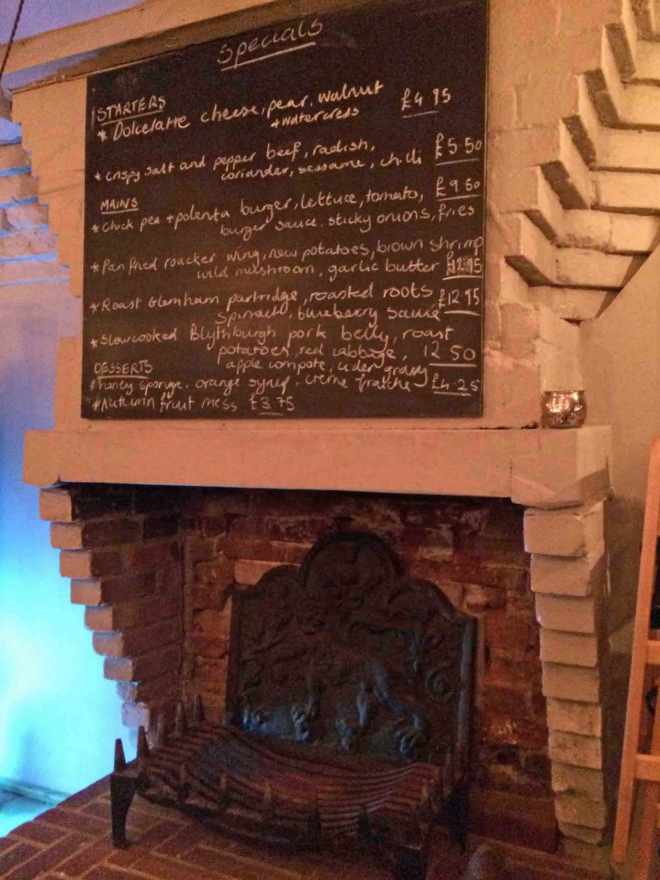 Specials
STARTERS
* Dolcelatte cheese, pear, walnut £4 95
+ watercress
* crispy salt and pepper beef, radish, £5.50
coriander, sessame, chilli
MAINS
* Chick pea + polenta burger, lettuce, tomato, £9.50
burger sauce. sticky onions, fries
* Pan fried roacker wing, new potatoes, brown shrimp
wild mushroom, garlic butter £12.95
* Roast Glemham partridge, roasted roots, £12.95
Spinach, blueberry sauce
* Slowcooked Blythburgh pork belly, roast
potatoes, red cabbage, 12 50
apple compote, cider gravy
DESSERTS
* honey sponge. orange syrup. creme fraiche £4.25
* Autumn fruit mess £3.75